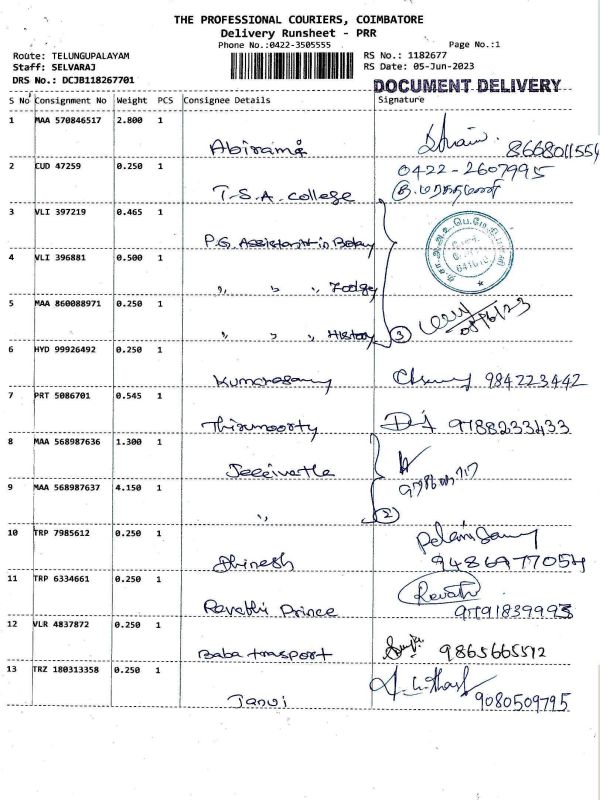 THE PROFESSIONAL COURIERS, COIMBATORE
Delivery Runsheet - PRR
Phone No.:0422-3505555
Page No.:1
Route: TELUNGUPALAYAM
Staff: SELVARAJ
DRS No.: DCJB118267701
RS No.: 1182677
RS Date: 05-Jun-2023
DOCUMENT DELIVERY
S No Consignment No Weight PCS Consignee Details Signature
1 MAA 570846517 2.800 1
Abirami 8668011554
2 CUD 47259 0.250 1 0422-2607995
T.S.A. college
3 VLI 397219 0.465 1
P.G. Assistant in Botany
4 VLI 396881 0.500 1
" " " Zoology
5 MAA 860088971 0.250 1
" " " History 3
6 HYD 99926492 0.250 1
Kumarasamy 984223442
7 PRT 5086701 0.545 1
Thirumoorty 9788233433
8 MAA 568987636 1.300 1
9 MAA 568987637 4.150 1
" 2
10 TRP 7985612 0.250 1 Palanisamy
Dhinesh 9486977054
11 TRP 6334661 0.250 1 Revathi
Revathi Prince 9791839993
12 VLR 4837872 0.250 1
Baba transport 9865665512
13 TRZ 180313358 0.250 1
Janvi 9080509795